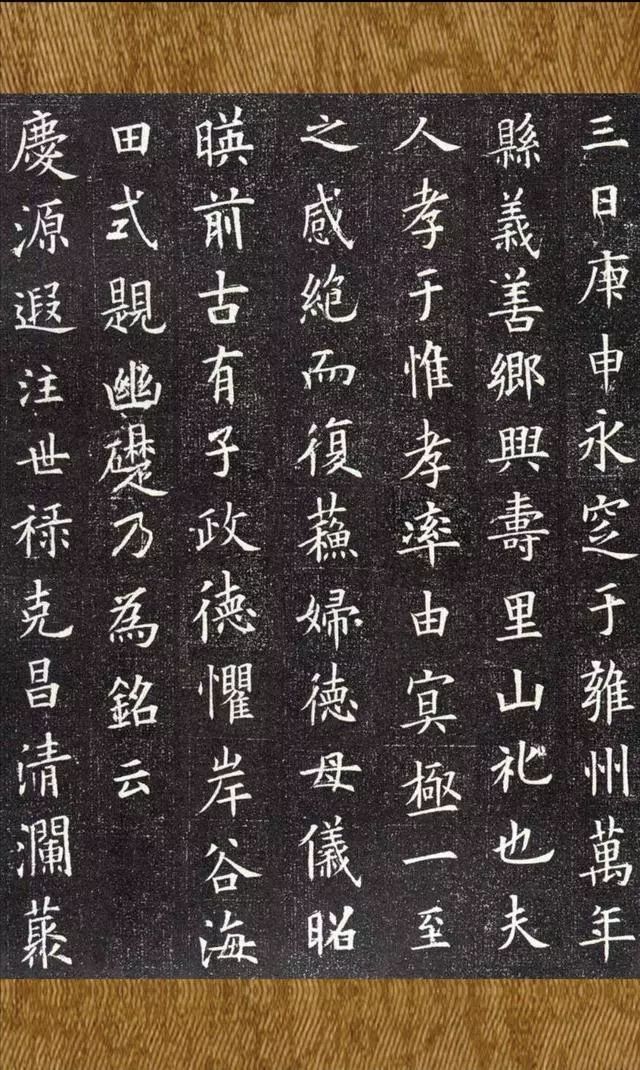 三日庚申永窆于雍州萬年
縣義善鄉興壽里山礼也夫
人孝于惟孝率由冥極一至
之感絕而復蘇婦德母儀昭
暎前古有子政德懼岸谷海
田式題幽礎乃為銘云
慶源遐注世祿克昌清瀾藂